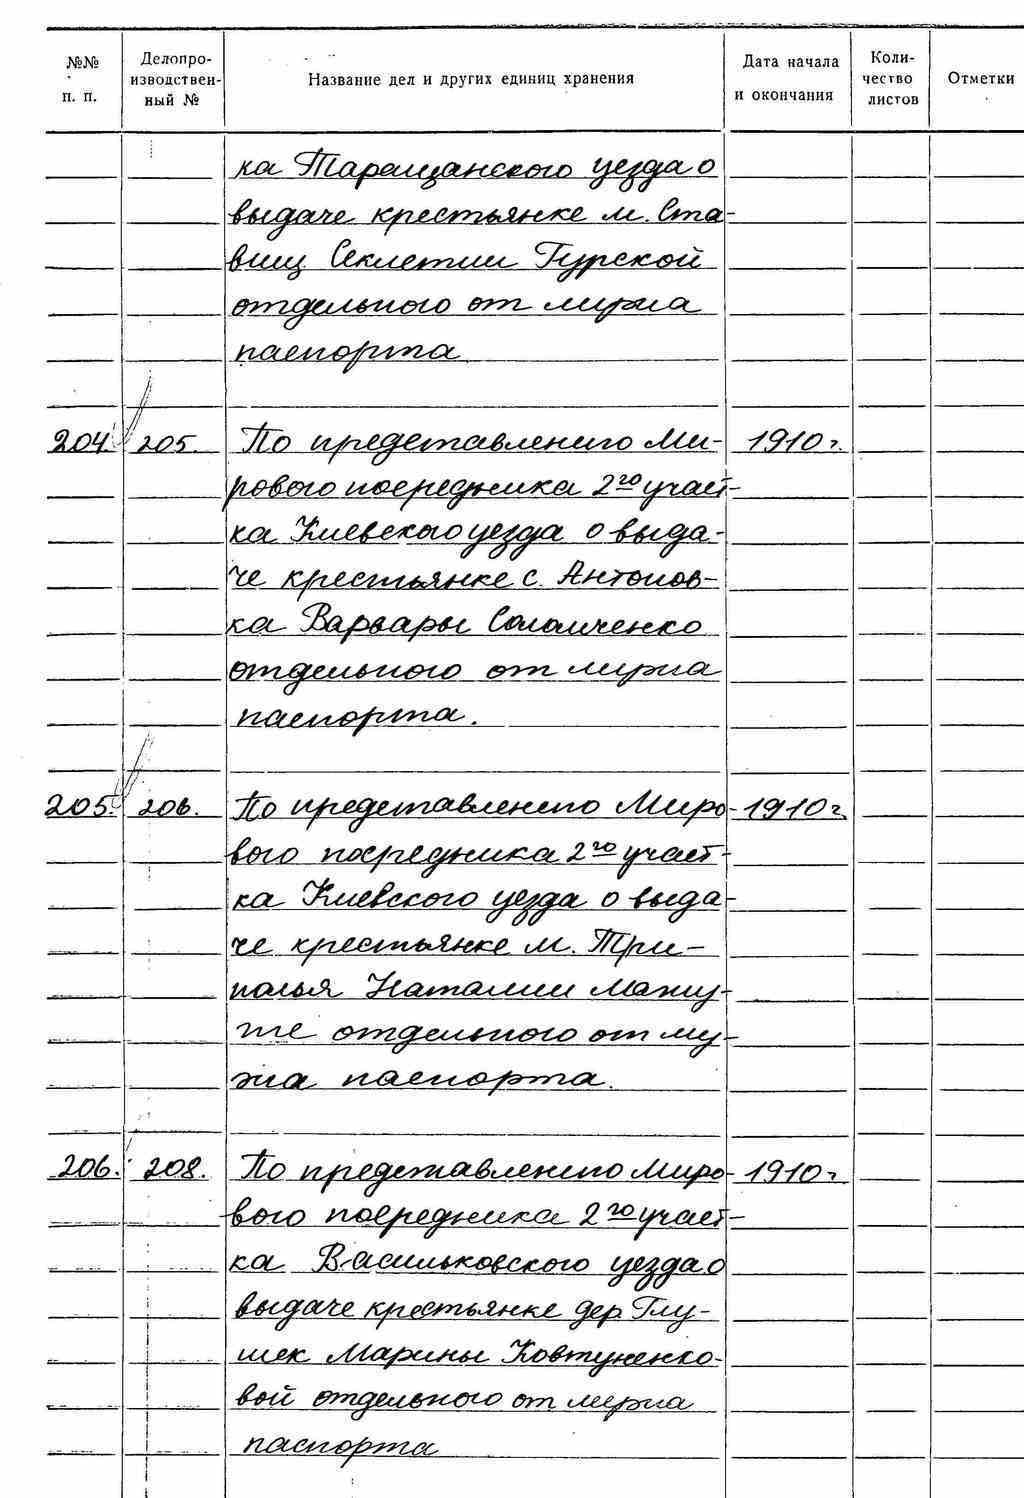 №№ п. п. Делопро- изводствен- ный № Название дел и других единиц хранения Дата начала и окончания Коли- чество листов Отметки
ка Таращанского уезда о
выдаче крестьянке м. Ста-
вищ Секлетии Гурской
отдельного от мужа
паспорта
204. 205. По представлению Ми- 1910 г.
рового посредника 2го участ-
ка Киевского уезда о выда-
че крестьянке с. Антонов-
ка Варвары Соломченко
отдельного от мужа
паспорта.
205. 206. По представлению Миро- 1910 г.
вого посредника 2го участ-
ка Киевского уезда о выда-
че крестьянке м. Три-
полья Наталии Мажу-
те отдельного от му-
жа паспорта.
206. 208. По представлению Миро- 1910 г
вого посредника 2го участ-
ка Васильковского уезда о
выдаче крестьянке дер. Глу-
шек Марины Ковтуненко-
вой отдельного от мужа
паспорта